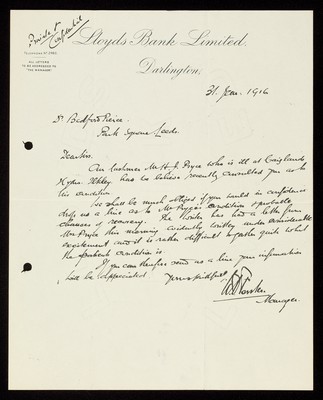 Private &
Confidential
Lloyds Bank Limited,
ALL LETTERS
TO BE ADDRESSED TO
"THE MANAGER"
Darlington,
31 Jan. 1916
Dr Bedford Pierce
Park Square Leeds.
Dear Sir,
Our Customer Mr H. J. Pryce who is ill at Craiglands
Hydro Ilkley has we believe recently consulted you as to
his condition.
We shall be much obliged if you would in confidence
drop us a line as to Mr Pryce's condition & probable
chances of recovery. The writer has had a letter from
Mrs Pryce this morning evidently written under considerable
excitement and it is rather difficult to gather quite what
the patient's condition is.
If you can therefore send us a line your information
will be appreciated
Yours faithfully
Manager.